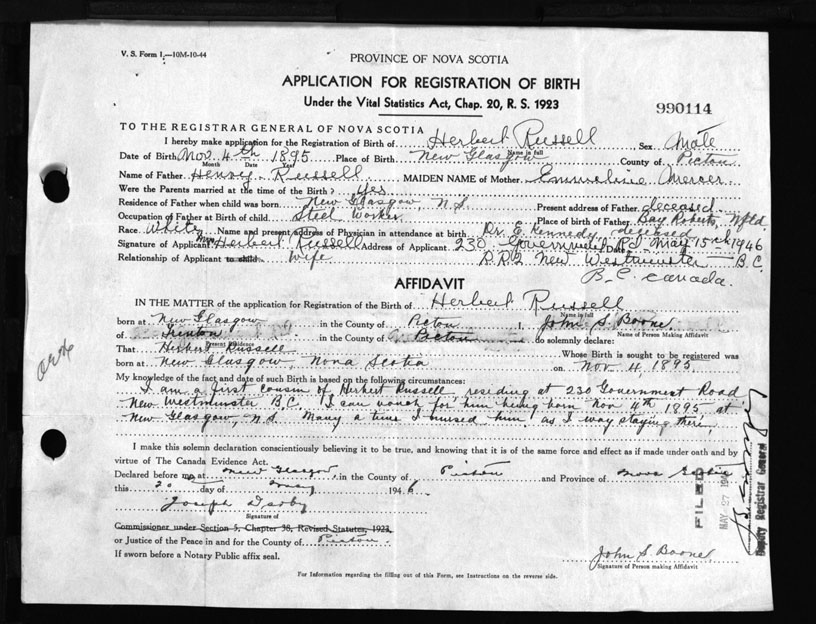 V. S. Form 1.—10M-10-44
PROVINCE OF NOVA SCOTIA
APPLICATION FOR REGISTRATION OF BIRTH
Under the Vital Statistics Act, Chap. 20, R. S. 1923
990114
TO THE REGISTRAR GENERAL OF NOVA SCOTIA
I hereby make application for the Registration of Birth of Herbert Russell Sex Male
Name in full
Date of Birth Nov. 4th 1895 Place of Birth New Glasgow County of Pictou
Month Date Year
Name of Father Henry Russell MAIDEN NAME of Mother Emmeline Mercer
Were the Parents married at the time of the Birth? yes
Residence of Father when child was born New Glasgow, N.S. Present address of Father deceased
Occupation of Father at Birth of child Steel Worker Place of birth of Father Bay Roberts, Nfld.
Race White Name and present address of Physician in attendance at birth Dr. E. Kennedy, deceased
Signature of Applicant Mrs Herbert Russell Address of Applicant 230 Government Rd. Date May 15th 1946
Relationship of Applicant to child wife R.R.2 New Westminster B.C.
B.C. Canada.
AFFIDAVIT
IN THE MATTER of the application for Registration of the Birth of Herbert Russell
Name in full
born at New Glasgow in the County of Pictou I, John S. Boone
Name of Person Making Affidavit
of Trenton in the County of Pictou do solemnly declare:
Present Residence
That Herbert Russell Whose Birth is sought to be registered was
born at New Glasgow, Nova Scotia on Nov 4, 1895
My knowledge of the fact and date of such Birth is based on the following circumstances:
I am a first cousin of Herbert Russell, residing at 230 Government Road
New Westminster B.C. I can vouch for him being born Nov 4th 1895, at
New Glasgow, N.S. Many a time I nursed him, as I was staying there,
I make this solemn declaration conscientiously believing it to be true, and knowing that it is of the same force and effect as if made under oath and by
virtue of The Canada Evidence Act.
Declared before me at New Glasgow, in the County of Pictou and Province of Nova Scotia
this 20 day of May 1946
Joseph
Signature of
Commissioner under Section 5, Chapter 38, Revised Statutes, 1923,
or Justice of the Peace in and for the County of Pictou
If sworn before a Notary Public affix seal.
John S Boone
Signature of Person making Affidavit
For Information regarding the filling out of this Form, see Instructions on the reverse side.
FILED
MAY 27 194
Deputy Registrar General